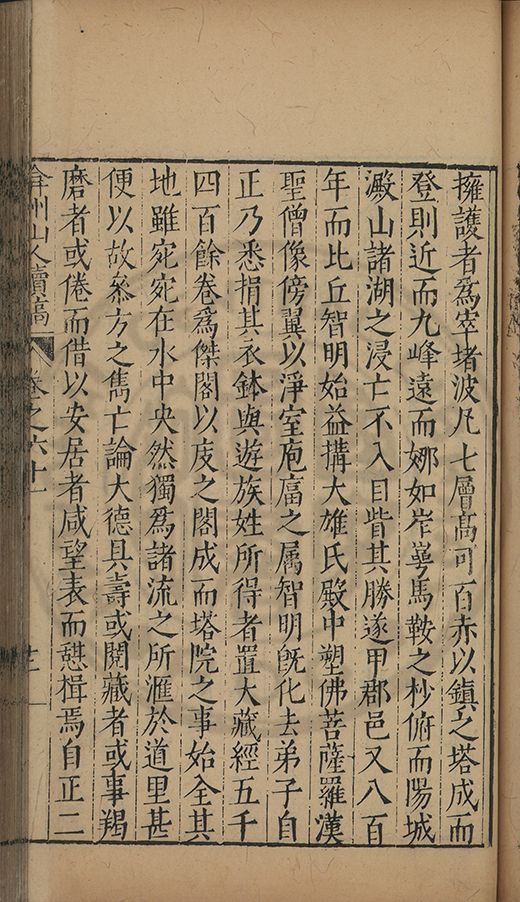 擁護者為窣堵波凡七層高可百赤以鎮之塔成而
登則近而九峰遠而娜如岝崿馬鞍之杪俯而陽城
澱山諸湖之浸亡不入目眥其勝遂甲郡邑又八百
年而比丘智明始益搆大雄氏殿中塑佛菩薩羅漢
聖僧像傍翼以淨室庖湢之属智明既化去弟子自
正乃悉捐其衣鉢與遊族姓所得者置大藏經五千
四百餘卷為傑閣以庋之閣成而塔院之事始全其
地雖宛宛在水中央然獨為諸流之所滙於道里甚
便以故叅方之雋亡論大德具壽或閱藏者或事羯
磨者或倦而借以安居者咸望表而憇楫焉自正二
弇州山人續稿 卷之六十一